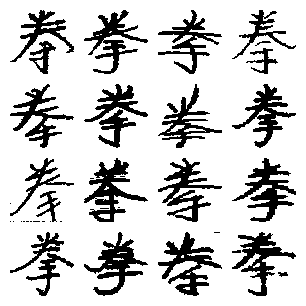 拳拳拳拳
拳拳拳拳
拳拳拳拳
拳拳拳拳